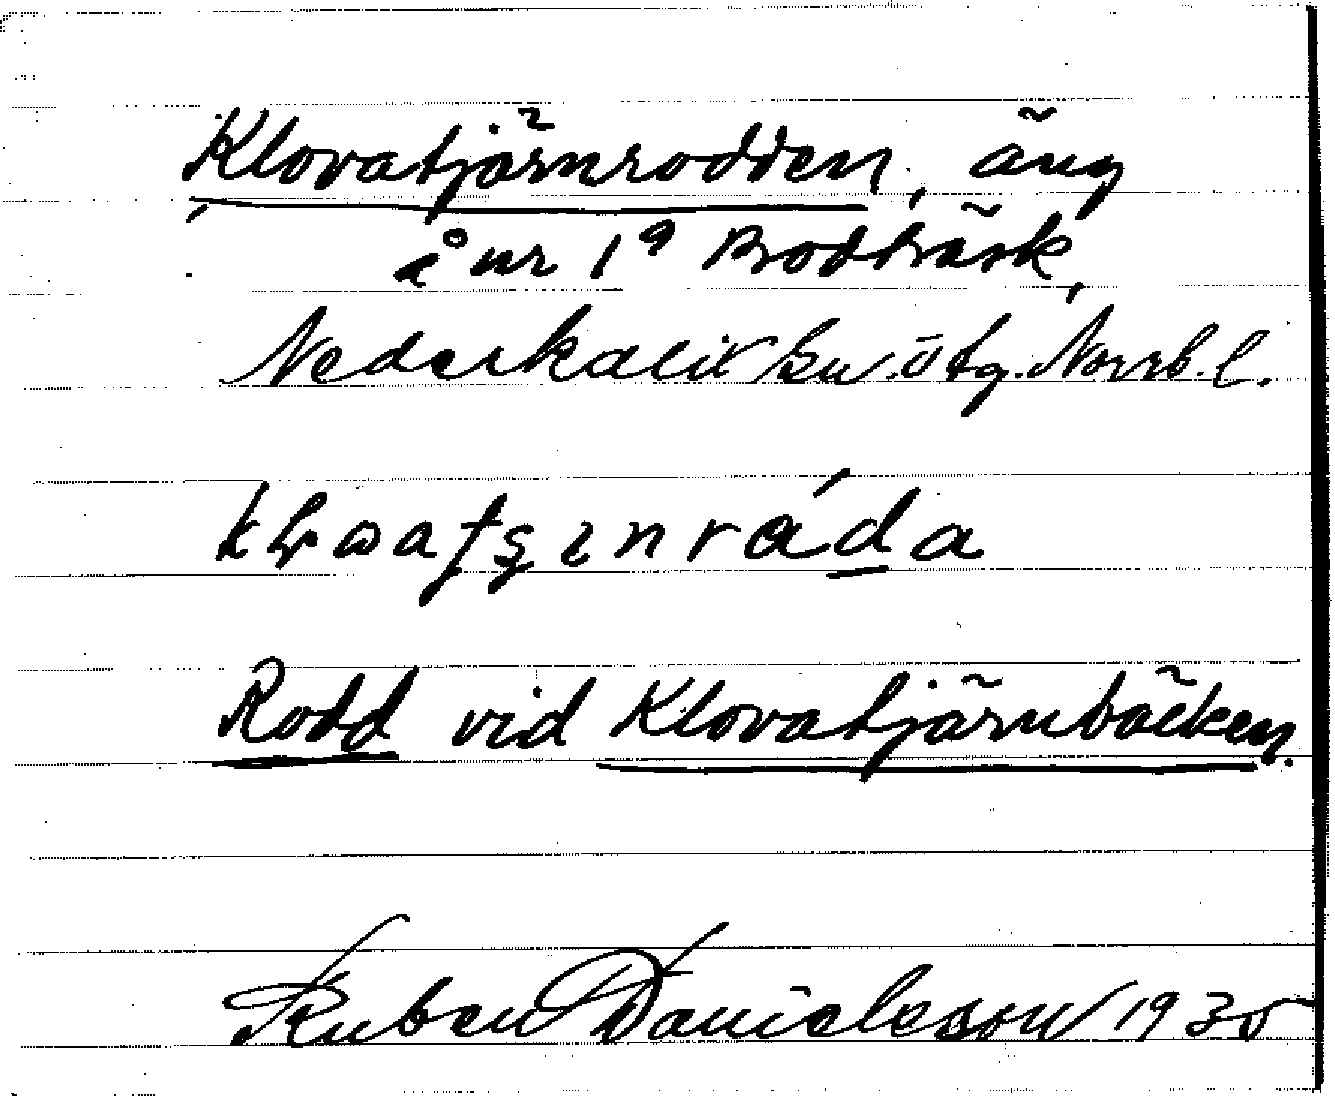 Klovatjärnrodden, äng
å nr 1⁹ Brodträsk,
Nederkalix sn. ötg. Norrb. l.
Rodd vid Klovatjärnbäcken.
Ruben Danielsson 1935